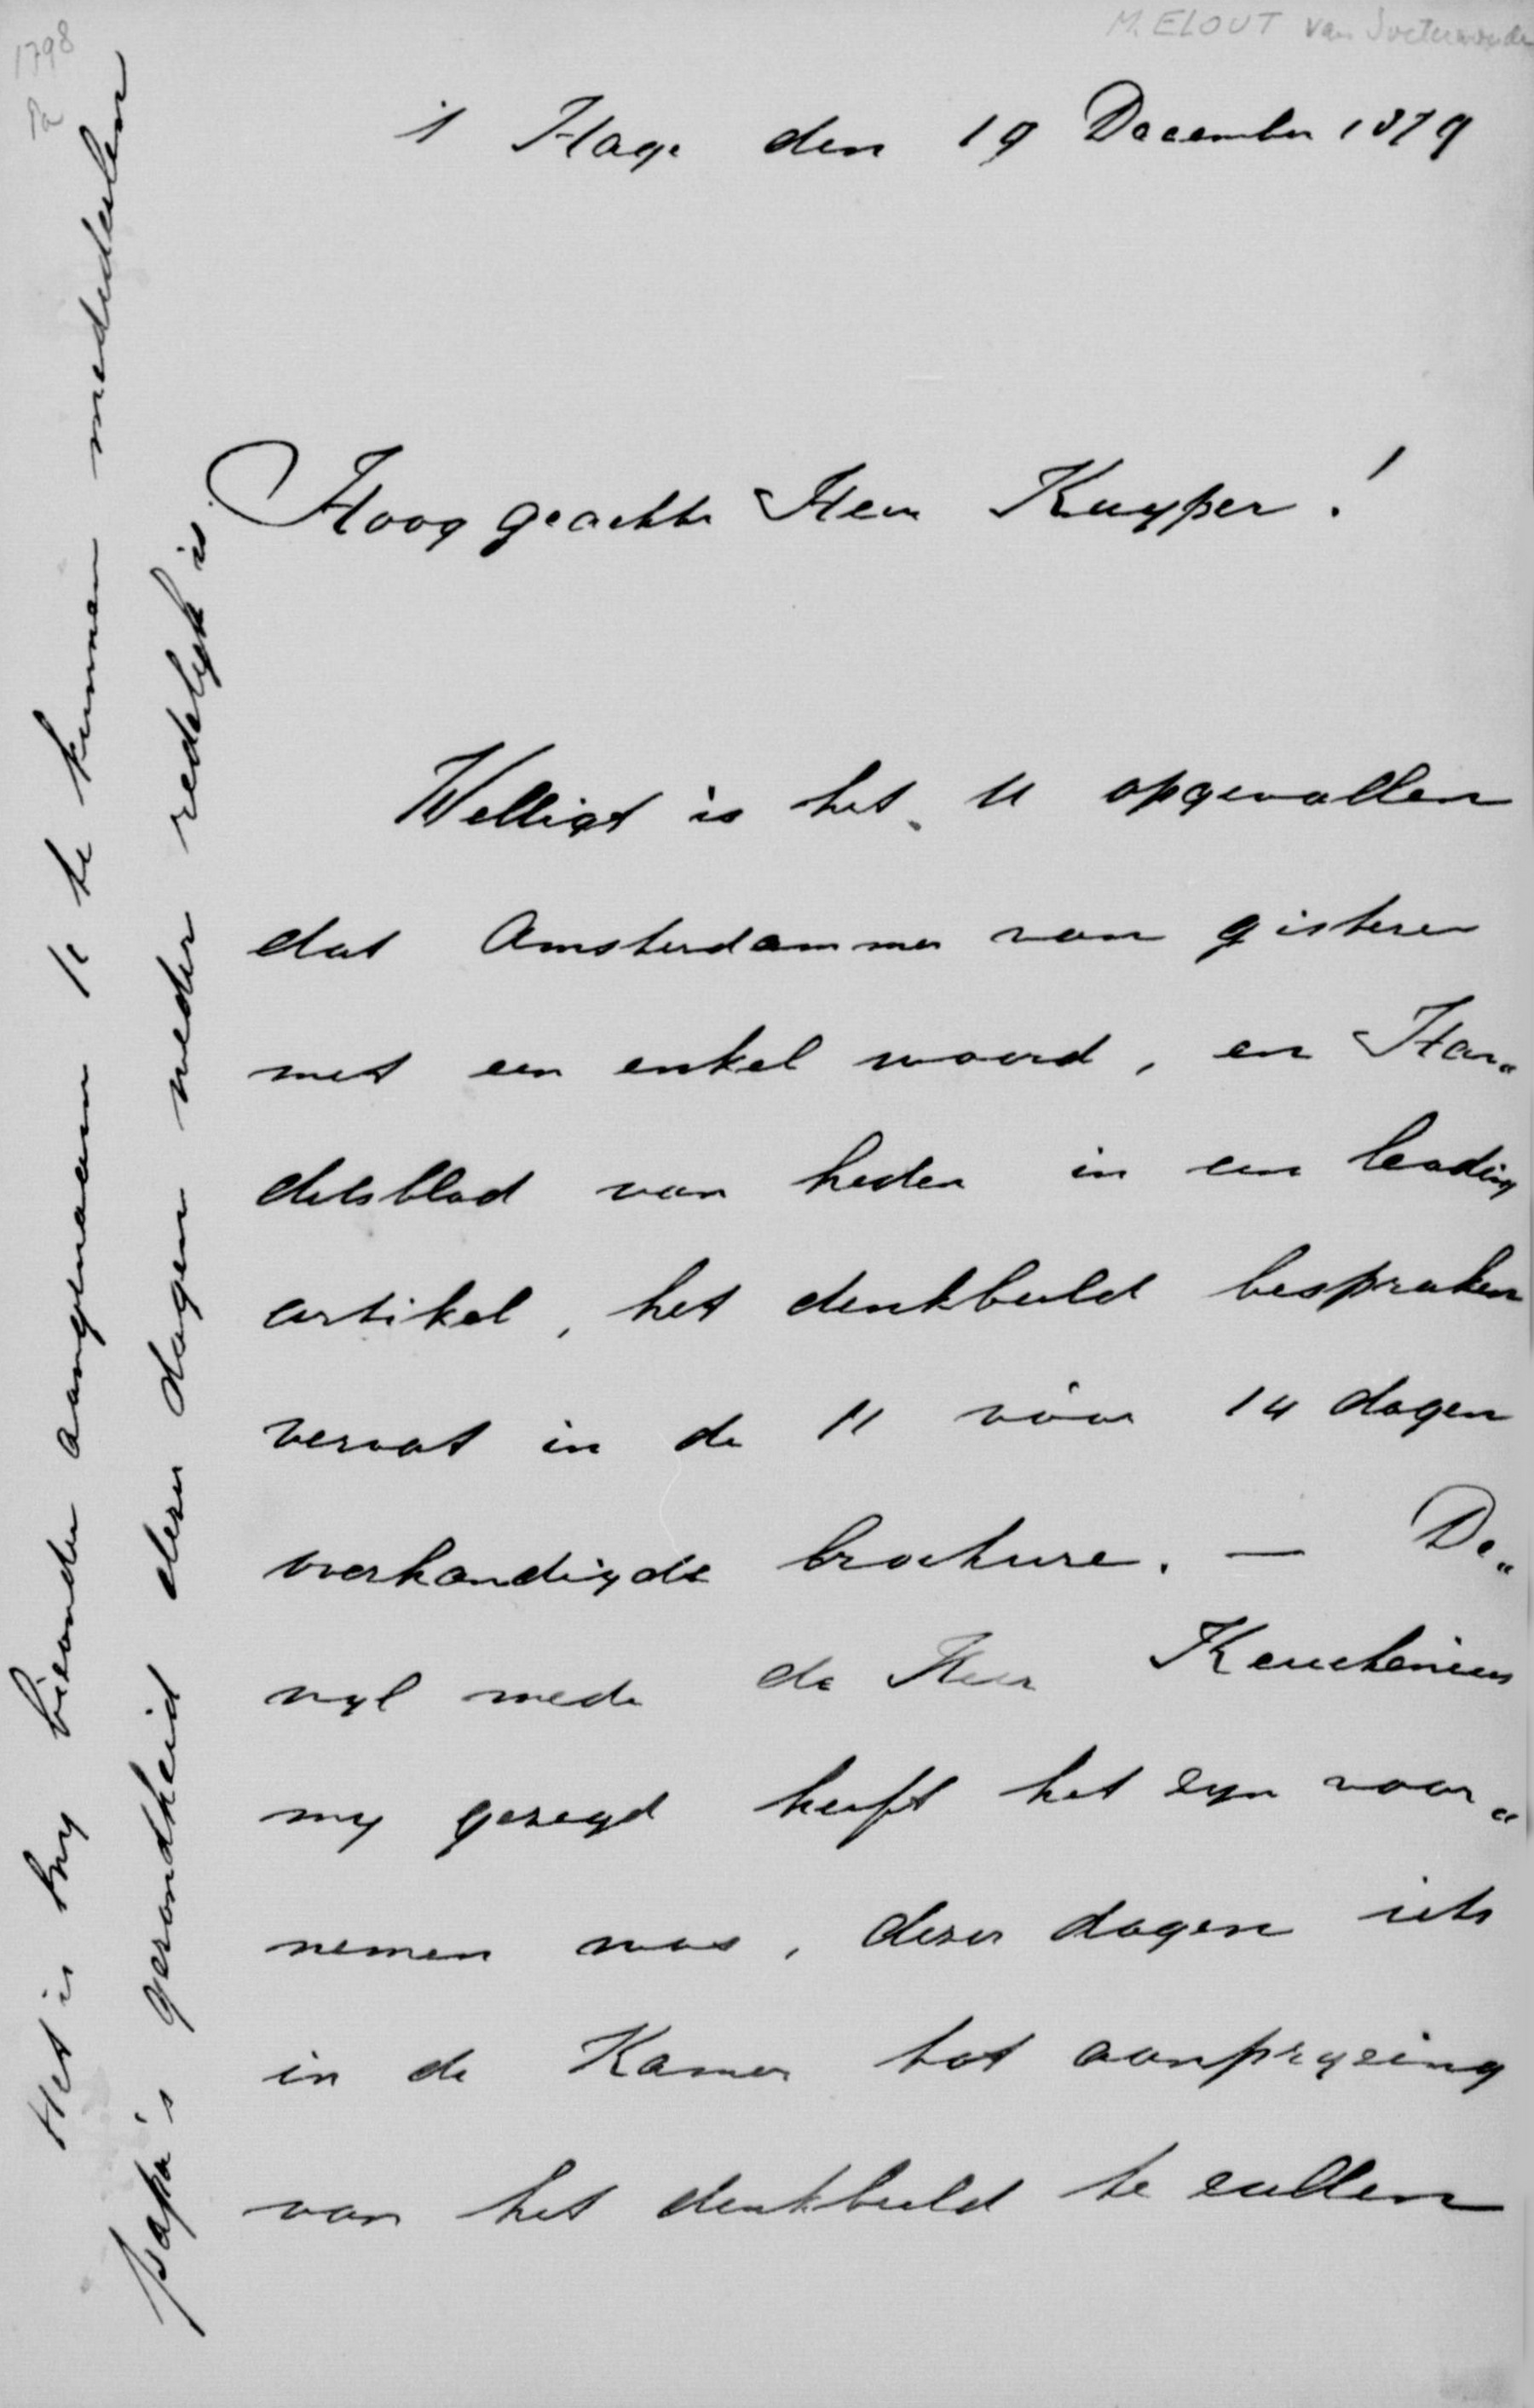 1798
Pa
M. ELOUT van Soeterwoude
's Hage den 19 December 1879
Hooggeachte Heer Kuyper!
Welligt is het U opgevallen
dat Amsterdammer van gisteren
met een enkel woord, en Han„
delsblad van heden in een leading
artikel, het denkbeeld bespraken
vervat in de U vóór 14 dagen
overhandigde brochure. — De„
wyl mede de Heer Keuchenius
my gezegd heeft het zyn voor„
nemen was, dezer dagen iets
in de Kamer tot aanpryzing
van het denkbeeld te zullen
Het is my bizonder aangenaam U te kunnen mededeelen
papa's gezondheid dezen dagen weder redelyk is.